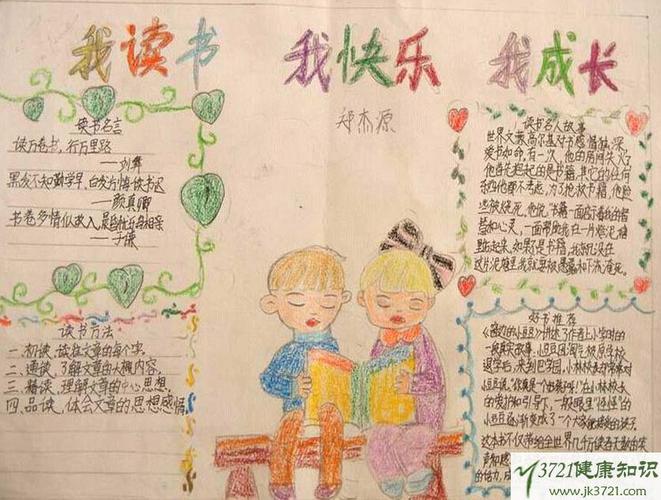 我读书 我快乐 我成长
郑杰源
读书名言
读万卷书,行万里路
——刘彝
黑发不知勤学早,白发方悔读书迟
——颜真卿
书卷多情似故人,晨昏忧乐每相亲
——于谦
读书方法
一、初读,读准文章的每个字。
二、速读,了解文章的大概内容。
三、精读,理解文章的中心思想。
四、品读,体会文章的思想感情。
读书名人故事
世界文豪高尔基对书感情独深,
爱书如命,有一次,他的房间失火了
他首先抱起的是书籍,其它的任何
东西他都不考虑,为了抢救书籍,他险
些被烧死,他说:"书籍一面启示着我的智
慧和心灵,一面帮助我在一片烂泥塘
里站起来,如果不是书籍,我就沉没在
这片泥塘里,我就要被愚蠢和下流淹死。
好书推荐
《窗边的小豆豆》讲述了作者上小学时的
一段真实故事。小豆豆因淘气被原学校
退学后,来到巴学园,小林校长却常常对
小豆豆说:"你真是一个好孩子呀!"在小林校长
的爱护和引导下,一般人眼里"怪怪"的
小豆豆逐渐变成了一个大家都能接受的孩子。
这本书不仅带给全世界几千万读者无数的笑
声和感
的活力,成
3721健康知识
www.jk3721.com